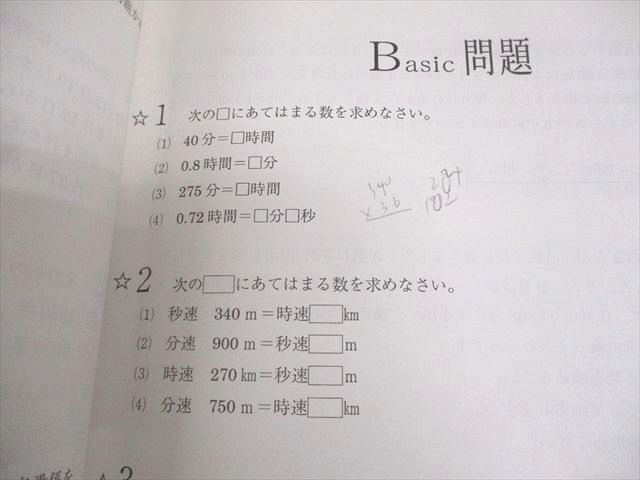 Basic 問題
☆1 次の□にあてはまる数を求めなさい。
(1) 40分＝□時間
(2) 0.8時間＝□分
(3) 275分＝□時間
(4) 0.72時間＝□分□秒
340
×36
☆2 次の□にあてはまる数を求めなさい。
(1) 秒速 340 m＝時速□km
(2) 分速 900 m＝秒速□m
(3) 時速 270 km＝秒速□m
(4) 分速 750 m＝時速□km
☆3